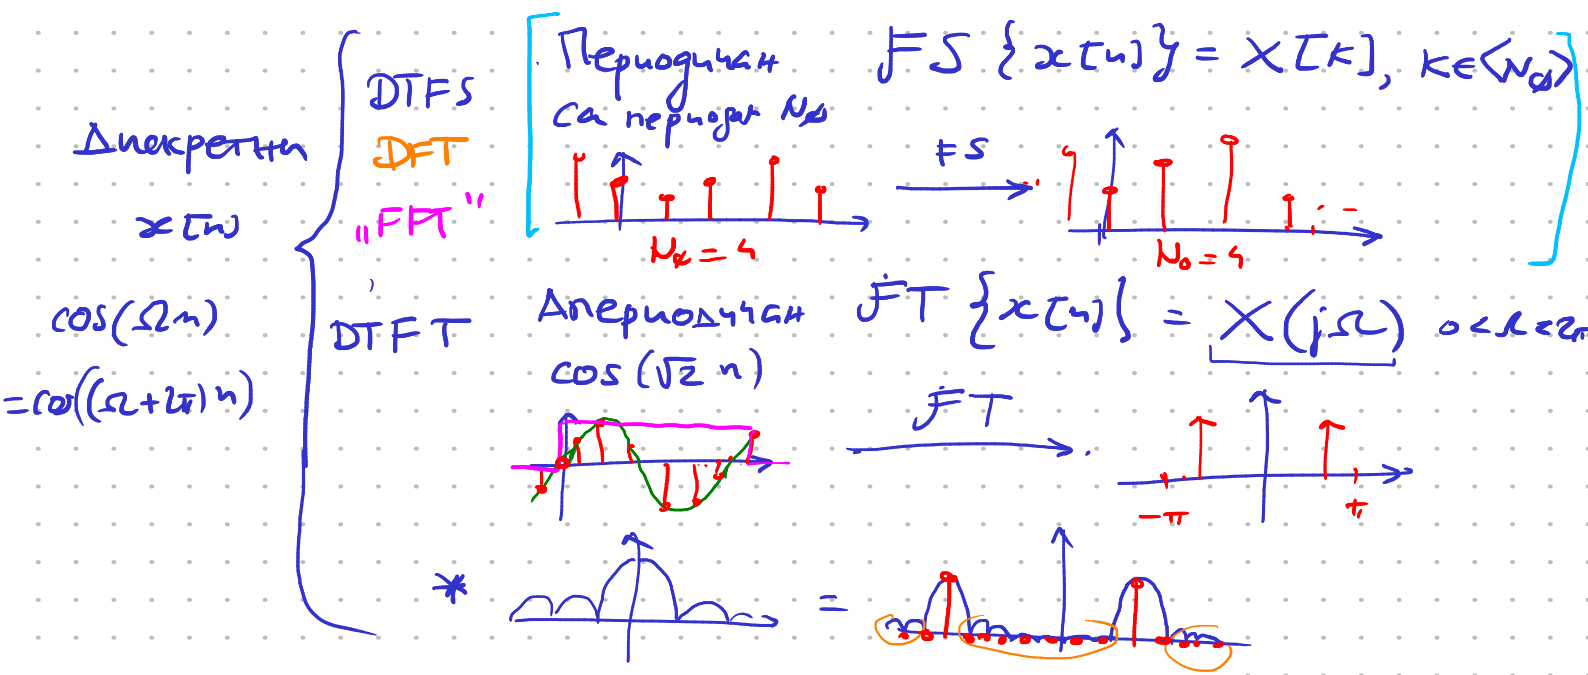 Дискретни
x[n]
cos(Ωn)
=cos((Ω+2π)n)
DTFS
DFT
„FFT"
DTFT
Периодичан
са периодом N₀
FS{x[n]} = X[k], k∈⟨N₀⟩
FS
N₀ = 4
N₀ = 4
Апериодичан
cos(√2 n)
FT{x[n]} = X(jΩ) 0<Ω<2π
FT
-π
π
*
=